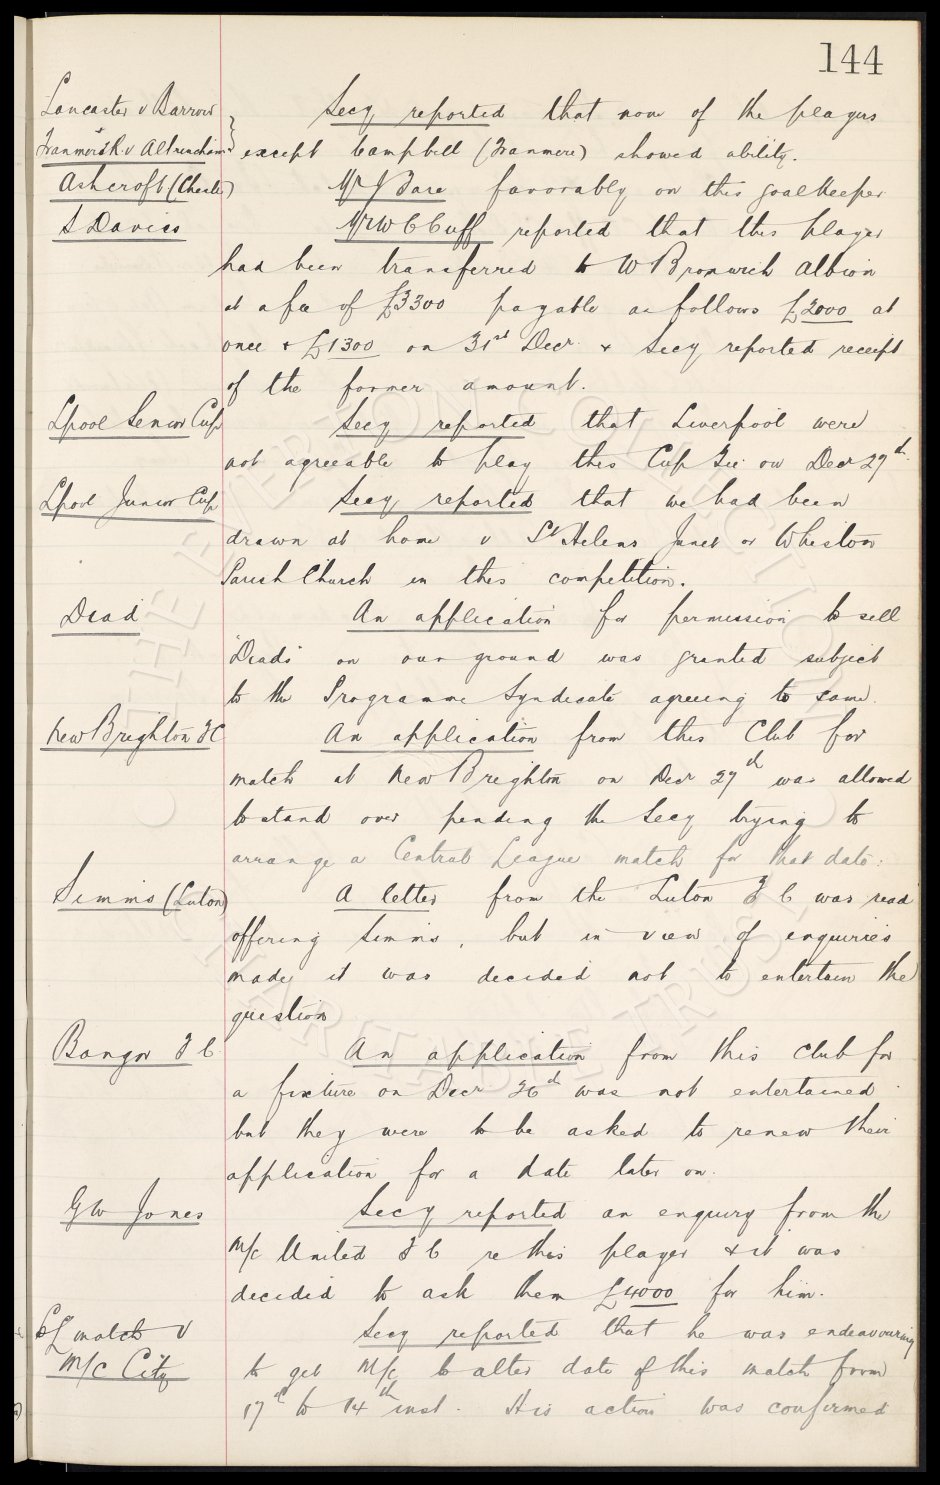 144
Lancaster v Barrow
Tranmere R v Altrincham
Secy reported that none of the players
except Campbell (Tranmere) showed ability.
Ashcroft (Chester)
Mr J Bare favorably on this goalkeeper
S Davies
Mr W C Cuff reported that this player
had been transferred to W Bromwich Albion
at a fee of £3300 payable as follows £2000 at
once + £1300 on 31st Decr. + Secy reported receipt
of the former amount.
Lpool Senior Cup
Secy reported that Liverpool were
not agreeable to play this Cup Tie on Decr 27th.
Lpool Junior Cup
Secy reported that we had been
drawn at home v St Helens Junct or Whiston
Parish Church in this competition.
Dead
An application for permission to sell
"Deads" on our ground was granted subject
to the Programme Syndicate agreeing to same.
New Brighton FC
An application from this Club for
match at New Brighton on Decr 27th was allowed
to stand over pending the Secy trying to
arrange a Central League match for that date.
Simms (Luton)
A letter from the Luton F C was read
offering Simms, but in view of enquiries
made it was decided not to entertain the
question
Bangor F C.
An application from this Club for
a fixture on Decr 26th was not entertained
but they were to be asked to renew their
application for a date later on.
G W Jones
Secy reported an enquiry from the
M/c United F C re this player + it was
decided to ask them £4000 for him.
CL match v
M/c City
Secy reported that he was endeavouring
to get M/c to alter date of this match from
17th to 14th inst. His action was confirmed
THE EVERTON COLLECTION
CHARITABLE TRUST